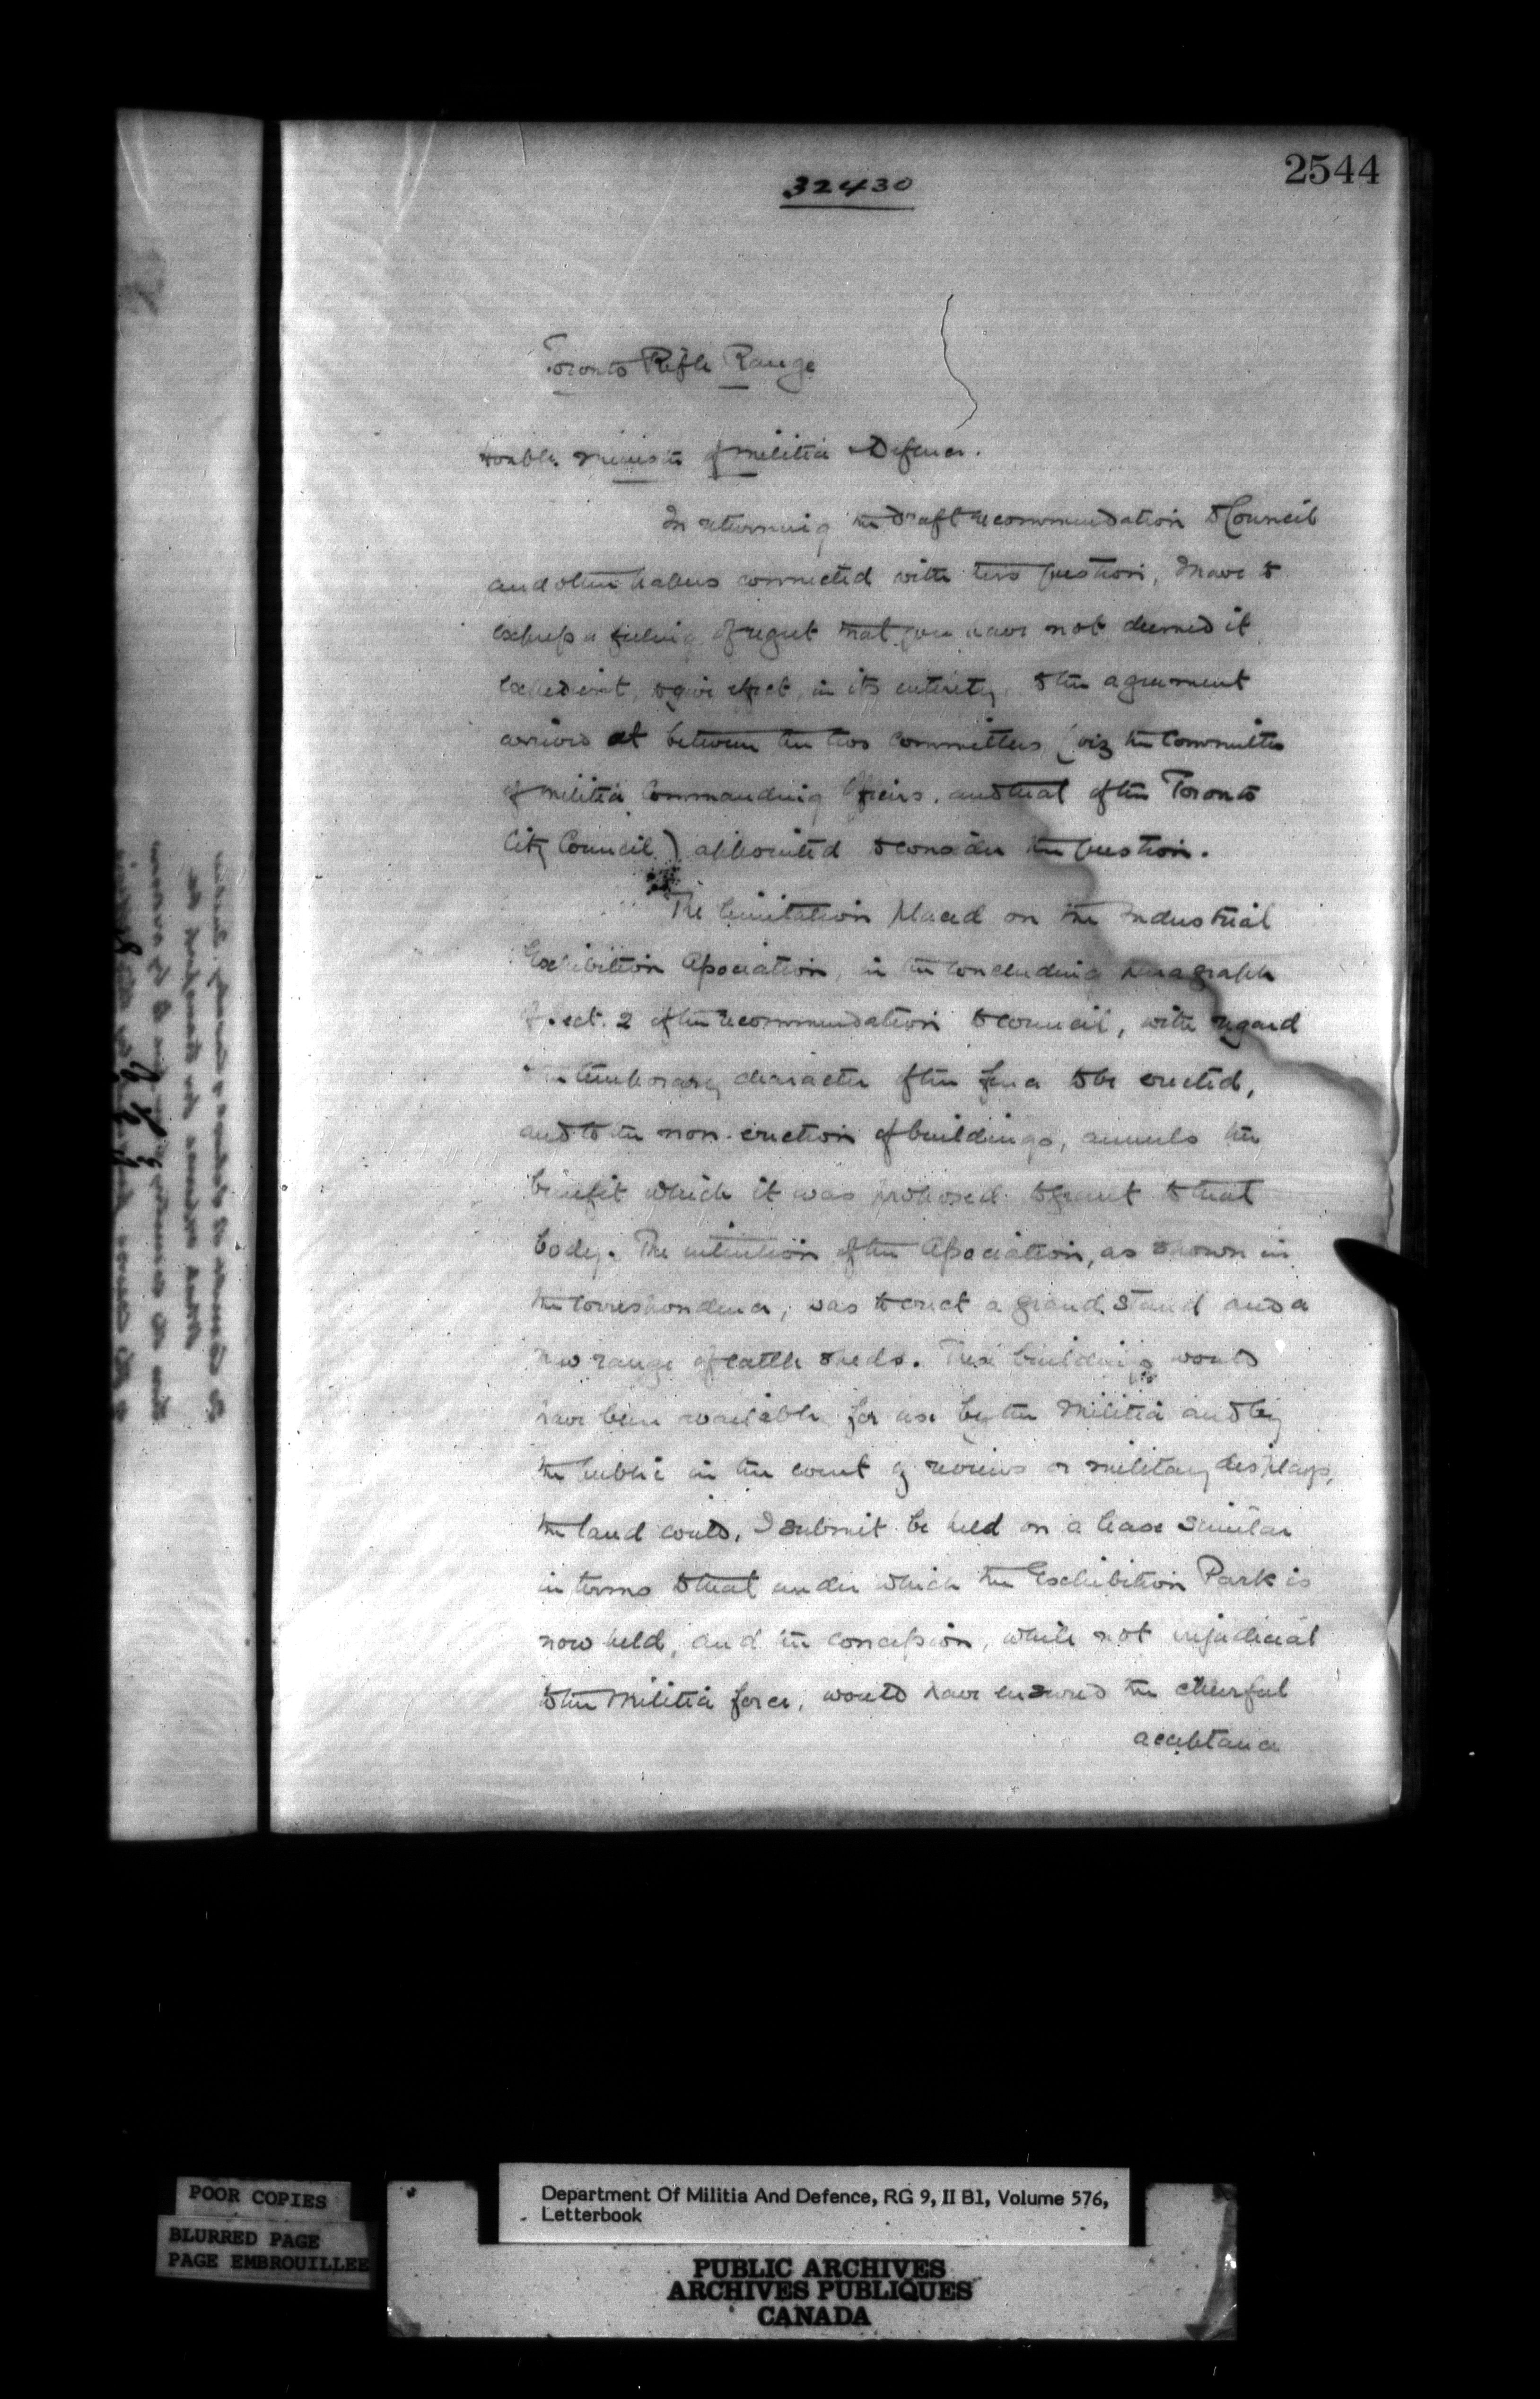 2544
32430
Toronto Rifle Range
Honble. Minister of Militia & Defence.
In returning the draft recommendation to Council
and other papers connected with this question, I have to
express a feeling of regret that you have not deemed it
expedient, to give effect, in its entirety, to the agreement
arrived at between the two Committees (viz the Committee
of Militia Commanding Officers, and that of the Toronto
City Council) appointed to consider the question.
The limitation placed on the Industrial
Exhibition Association, in the concluding paragraph
of sect. 2 of the recommendation to council, with regard
temporary character of the fence to be erected,
and to the non-erection of buildings, annuls the
benefit which it was proposed to grant to that
body. The intention of the Association, as shown in
the correspondence, was to erect a grand stand and a
new range of cattle sheds. These buildings would
have been available for use by the Militia and by
the public in the event of reviews or military displays,
the land could, I submit be held on a lease similar
in terms to that under which the Exhibition Park is
now held, and the concession, while not injudicial
to the Militia force, would have ensured the cheerful
acceptance
POOR COPIES
BLURRED PAGE
PAGE EMBROUILLEE
Department Of Militia And Defence, RG 9, II B1, Volume 576,
Letterbook
PUBLIC ARCHIVES
ARCHIVES PUBLIQUES
CANADA